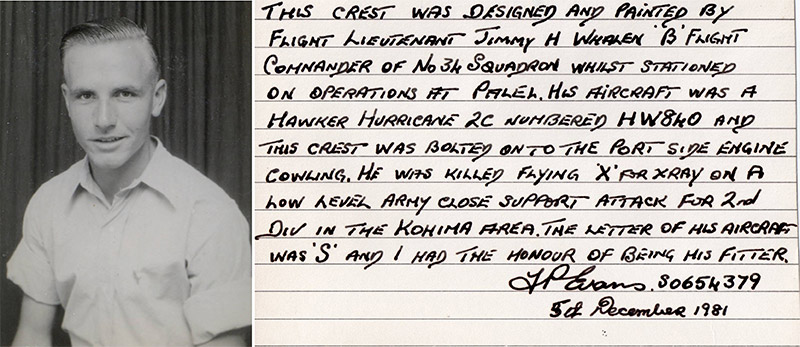 THIS CREST WAS DESIGNED AND PAINTED BY
FLIGHT LIEUTENANT JIMMY H WHALEN 'B' FLIGHT
COMMANDER OF No 34 SQUADRON WHILST STATIONED
ON OPERATIONS AT PALEL. HIS AIRCRAFT WAS A
HAWKER HURRICANE 2C NUMBERED HW840 AND
THIS CREST WAS BOLTED ONTO THE PORT SIDE ENGINE
COWLING. HE WAS KILLED FLYING 'X' FOR XRAY ON A
LOW LEVEL ARMY CLOSE SUPPORT ATTACK FOR 2nd
DIV IN THE KOHIMA AREA. THE LETTER OF HIS AIRCRAFT
WAS 'S' AND I HAD THE HONOUR OF BEING HIS FITTER.
Evans. S0654379
5th December 1981